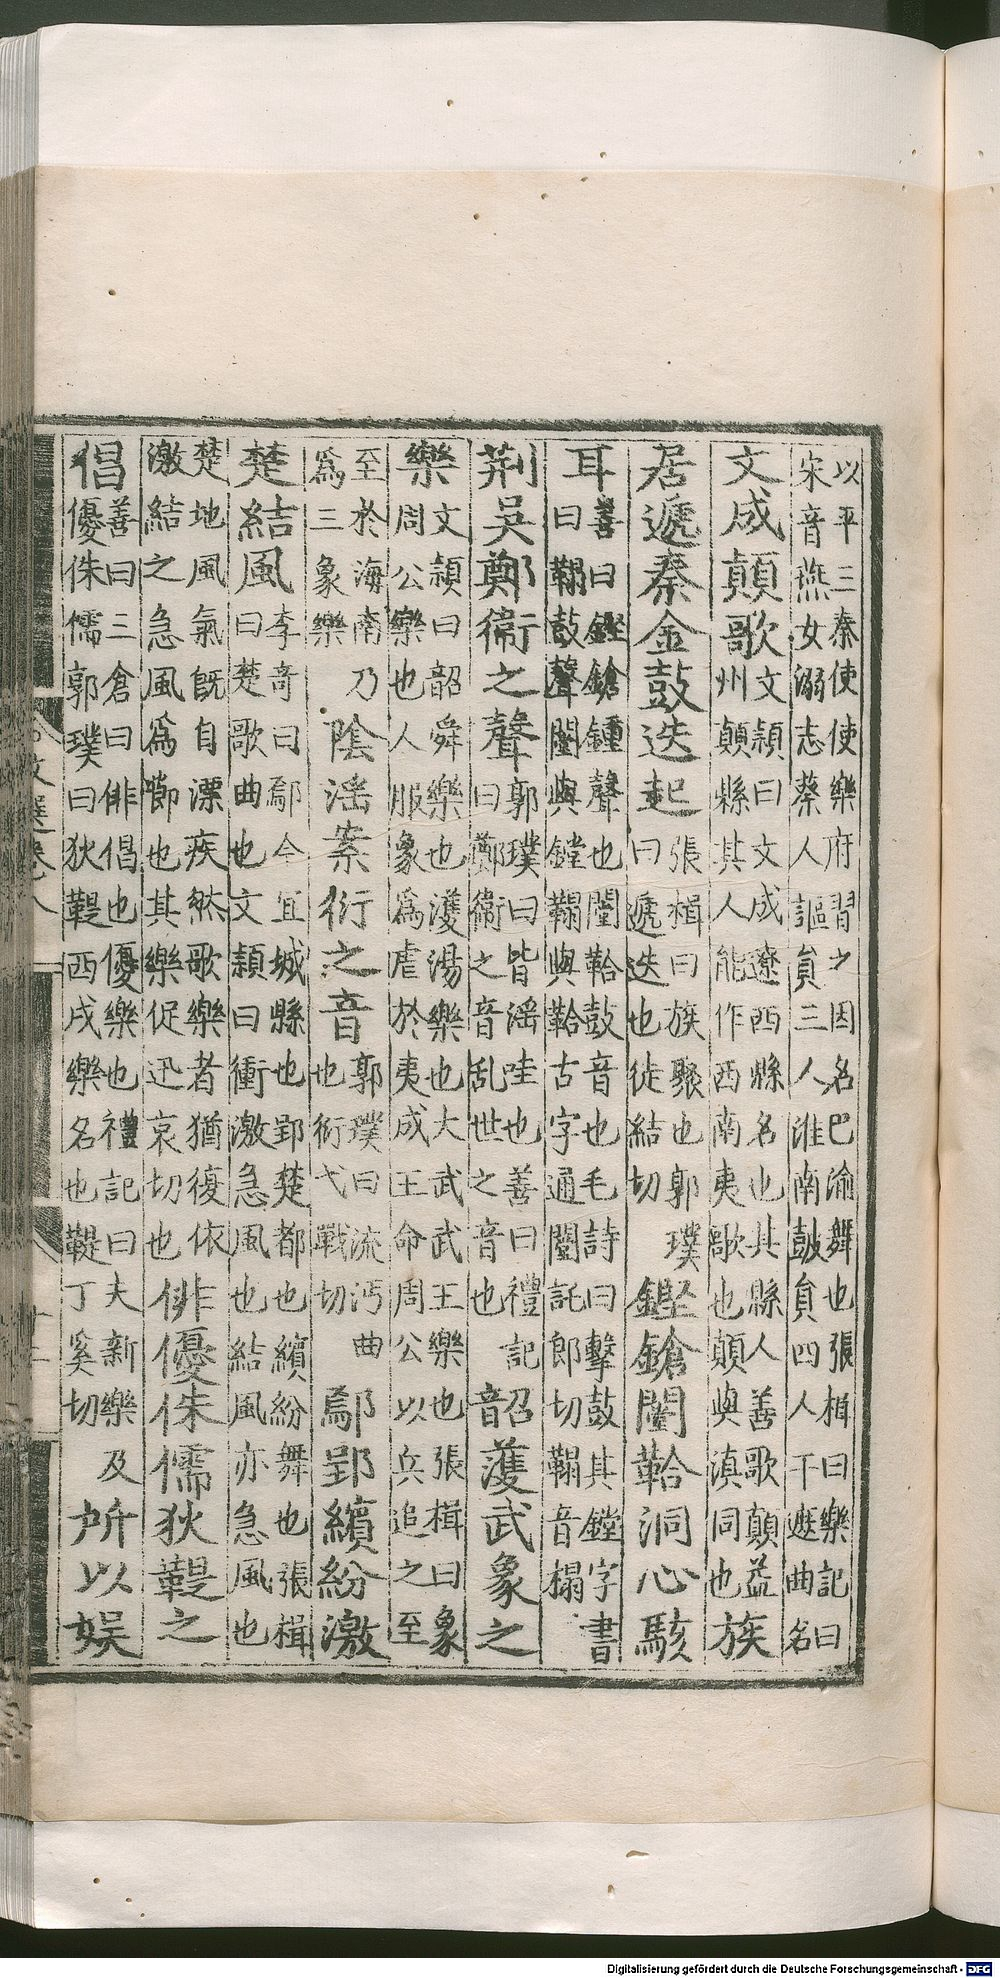 以平三秦使使樂府習之因名巴渝舞也張楫曰樂記曰
宋音燕女溺志蔡人謳貟三人淮南鼓貟四人干遮曲名
文成顛歌文穎曰文成遼西縣名也其縣人善歌顛益州顛縣其人能作西南夷歌也顛與滇同也族
居遞奏金鼓迭起張楫曰族聚也郭璞曰遞迭也徒結切鏗鎗闛鞈洞心駭
耳善曰鏗鎗鍾聲也闛鞈鼓音也毛詩曰擊鼓其鏜字書曰鞳鼓聲闛與鏜鞳與鞈古字通闛託郎切鞳音榻
荆吳鄭衛之聲郭璞曰皆淫哇也善曰禮記曰鄭衛之音亂世之音也韶濩武象之
樂文穎曰韶舜樂也濩湯樂也大武武王樂也張楫曰象周公樂也人服象爲虐於夷成王命周公以兵追之至
至於海南乃爲三象樂陰淫案衍之音郭璞曰流沔曲也衍弋戰切鄢郢繽紛激
楚結風李奇曰鄢今宜城縣也郢楚都也繽紛舞也張楫曰楚歌曲也文穎曰衝激急風也結風亦急風也
楚地風氣旣自漂疾然歌樂者猶復依激結之急風爲節也其樂促迅哀切也俳優侏儒狄鞮之
倡善曰三倉曰俳倡也優樂也禮記曰夫新樂及優侏儒郭璞曰狄鞮西戎樂名也鞮丁奚切所以娛
文選卷八
Digitalisierung gefördert durch die Deutsche Forschungsgemeinschaft - DFG